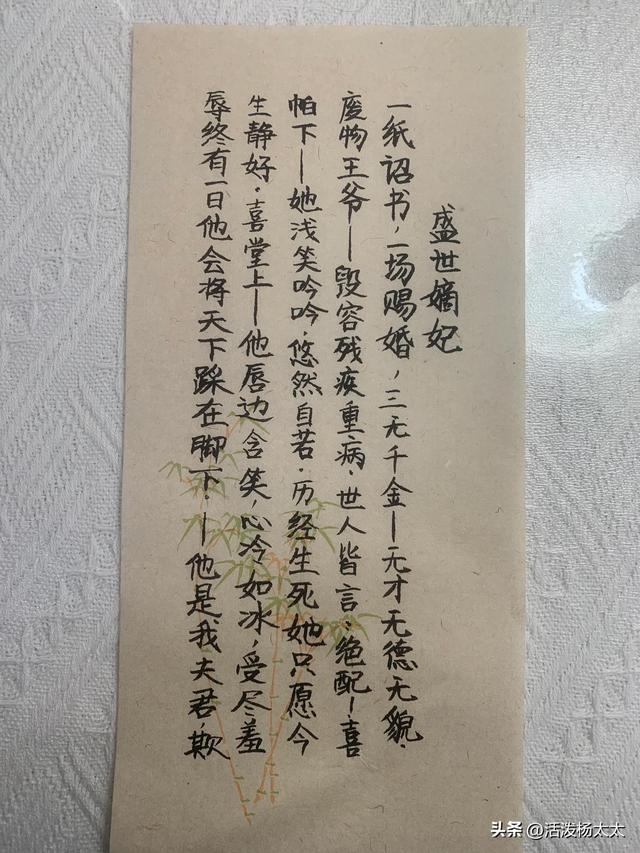 盛世嫡妃
一纸诏书，一场赐婚，三无千金—无才无德无貌．
废物王爷—毁容残疾重病．世人皆言：绝配！喜
帕下—她浅笑吟吟．悠然自若．历经生死她只愿今
生静好．喜堂上—他唇边含笑，心冷如冰，受尽羞
辱终有一日他会将天下踩在脚下．—他是我夫君，欺
头条 @活泼杨太太